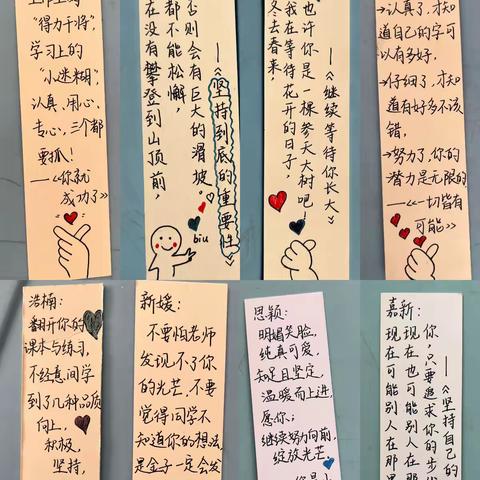 “得力干将”，
学习上的
“小迷糊”
认真、用心、
专心，三个都
要抓！
——《你就
成功了》
否则会有巨大的滑坡。
都不能松懈，
在没有攀登到山顶前，
——《坚持到底的重要性》
biu
也许你是一棵参天大树吧！
我在等待花开的日子，
冬去春来，
——《继续等待你长大》
→认真了，才知
道自己的字可
以有多好。
→仔细了，才知
道有好多不该
错，
→努力了，你的
潜力是无限的
——《一切皆有
可能》
浩楠：
翻开你的
课本与练习，
不经意间学
到了几种品质
向上，
积极，
坚持，
新媛：
不要怕老师
发现不了你
的光芒，不要
觉得同学不
知道你的想法
是金子一定会发
思颖：
明媚笑脸，
纯真可爱，
知足且坚定，
温暖而上进，
愿你：
继续努力向前，
绽放光芒，
嘉新：
你，只要追求你的步
现在也可能别人在那
现在可能别人在那里
——《坚持自己的